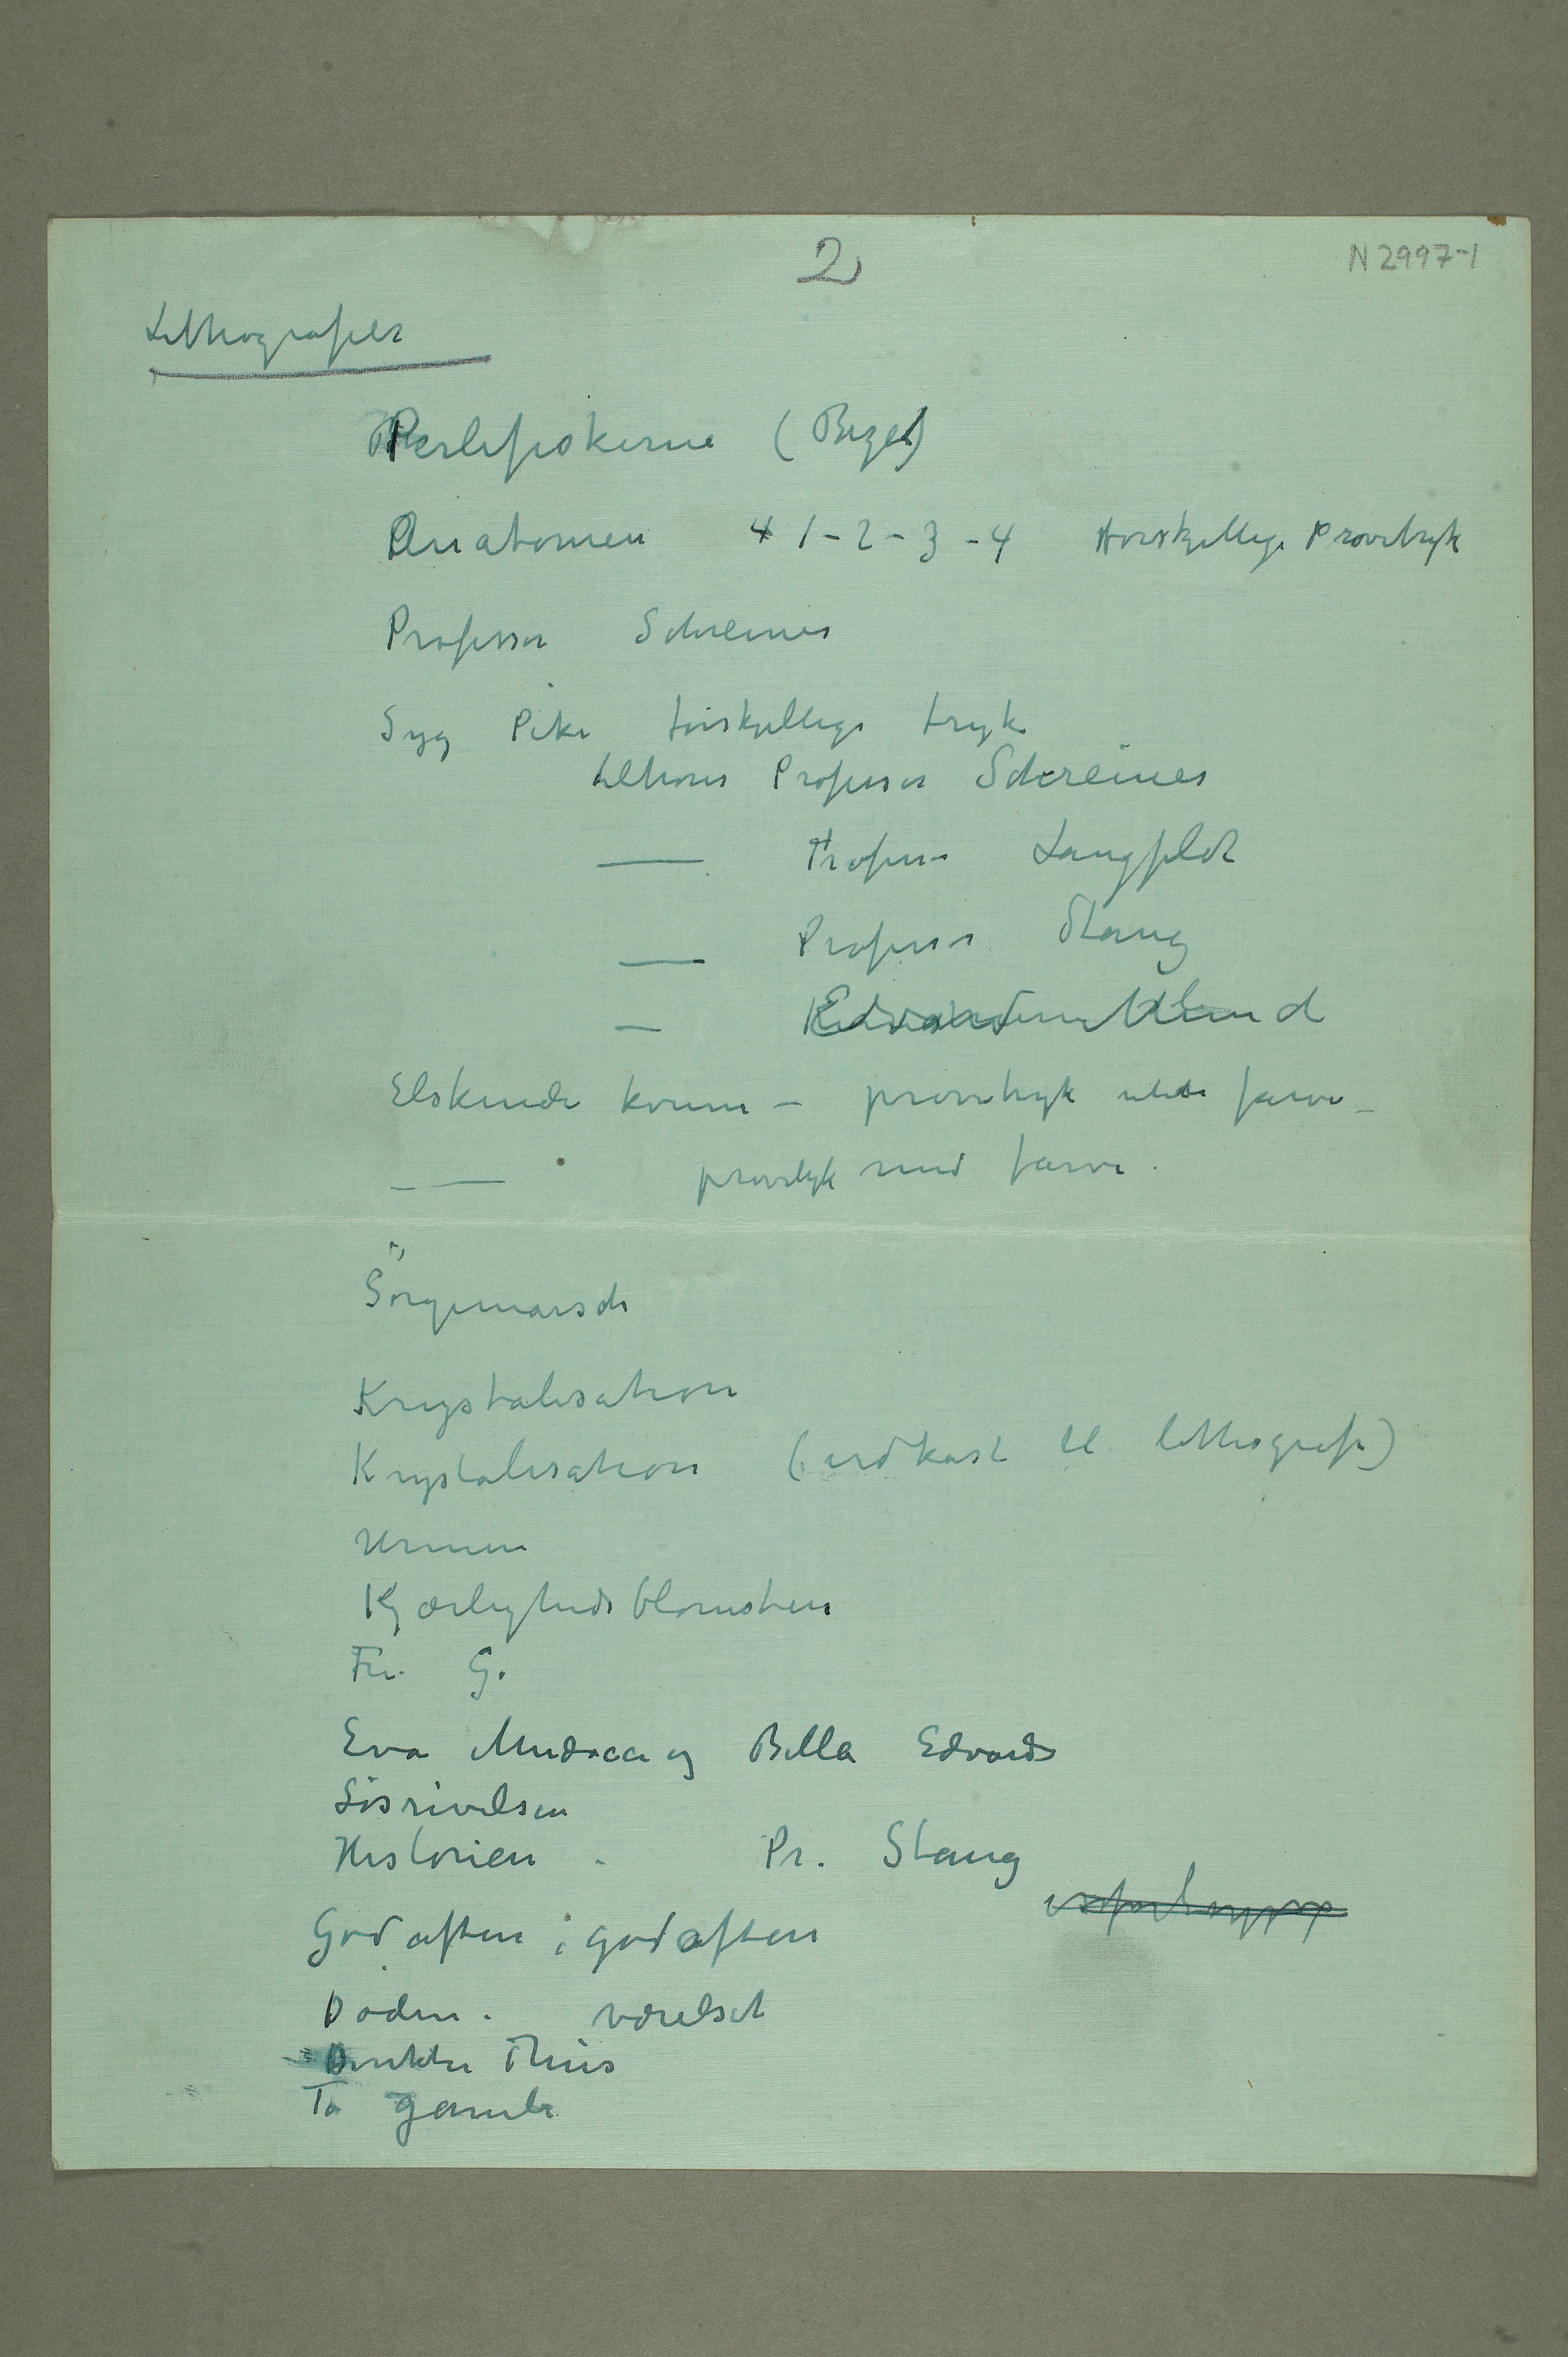 2
N 2997-1
Lithografier
Perlefiskerne (Bizet)
Anatomen 4 1-2-3-4 4 forskjellige Prøvetryk
Professor Schreiner
Syg Pike forskjellige tryk
tilhører Professor Schreiner
— Professor Langfeldt
— Professor Stang
—
Elskende kvinne – prøvetryk uden farve –
— prøvetryk med farve.
Sörgemarsch
Krystalisation
Krystalisation (udkast til lithografi)
Urnen
Kjærlighedsblomsten
Fru G.
Eva Mudocci og Bella Edvards
Løsrivelsen
Historien - Pr. Stang
God aften i god aften
Døden. værelset
Direktør Thiis
To gamle